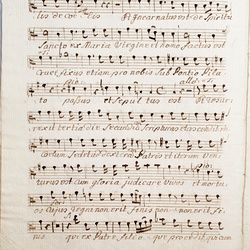 lis de coelis Et Incarnatus est de Spiritu
Sancto ex Maria Virgine et homo factus est
Crucifixus etiam pro nobis sub Pontio Pila
to passus et Sepultus est Et resur
rexit tertia die Secundum Scripturas et ascendit in
Coelum Sedet ad dexteram Patris et iterum Ven
turus est cum gloria judicare vivos et mortu
os cujus Regni non erit finis non non erit fi
nis qui ex Patre Filio que procedit qui cum